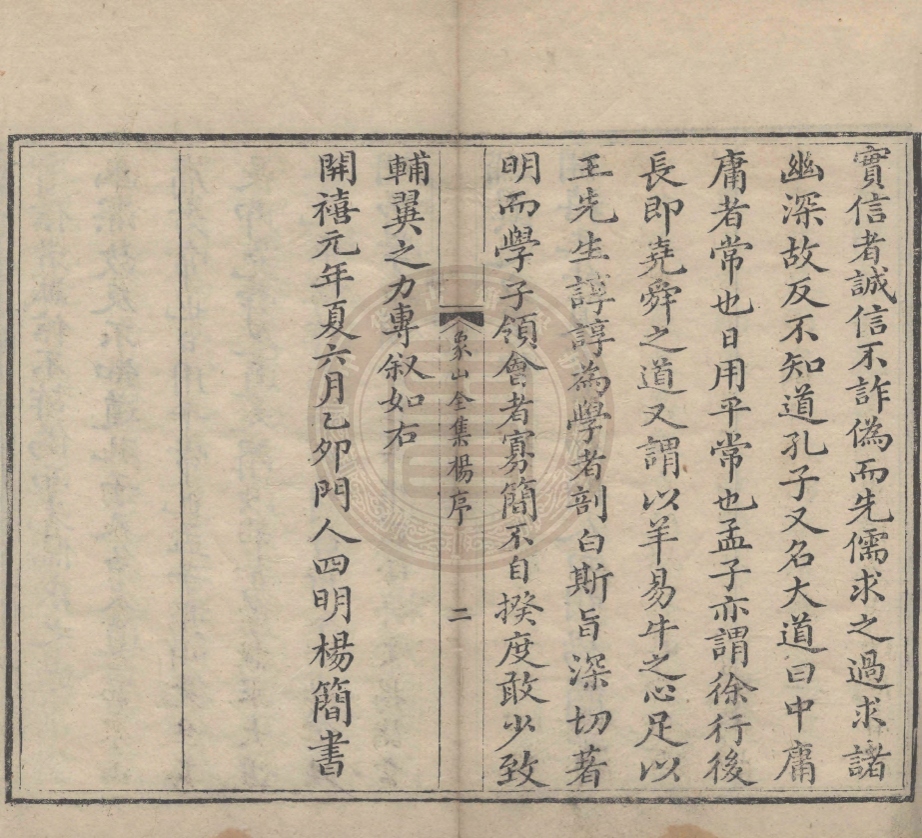 實信者誠信不詐偽而先儒求之過求諸
幽深故反不知道孔子又名大道曰中庸
庸者常也日用平常也孟子亦謂徐行後
長即堯舜之道又謂以羊易牛之心足以
王先生諄諄為學者剖白斯旨深切著
明而學子領會者寡簡不自揆度敢少致
象山全集楊序 二
輔翼之力專叙如右
開禧元年夏六月乙卯門人四明楊簡書